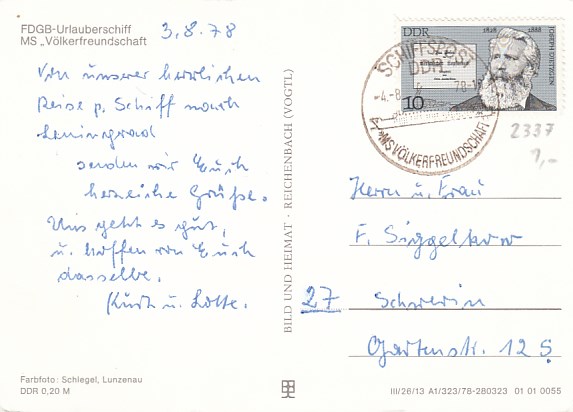 FDGB-Urlauberschiff
MS „Völkerfreundschaft
3.8.78
Von unserer herrlichen
Reise p. Schiff nach
Leningrad
senden wir Euch
herzliche Grüße.
Uns geht es gut,
u. hoffen von Euch
dasselbe.
Kurt u. Lotte.
Farbfoto: Schlegel, Lunzenau
DDR 0,20 M
BILD UND HEIMAT · REICHENBACH (VOGTL)
DDR 1828 1888
JOSEPH DIETZGEN
10
SCHIFFSPOST
DDR
-4.-8. 78-1
MS VÖLKERFREUNDSCHAFT
2337
1,-
Herrn u. Frau
F. Siggelkow
27 Schwerin
Gartenstr. 12 S
III/26/13 A1/323/78-280323 01 01 0055